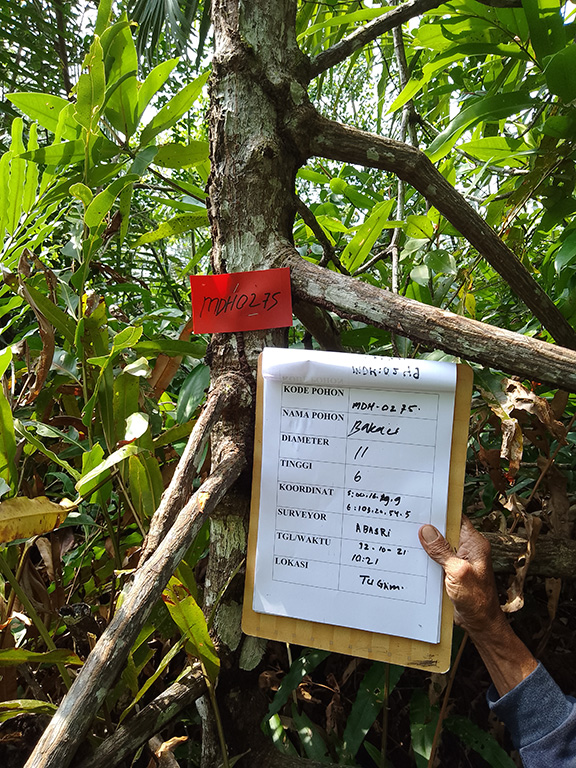 MDH0275
KODE POHON MDH-0275.
NAMA POHON Bakau
DIAMETER 11
TINGGI 6
KOORDINAT S:00.16.
E:103.20.54.5
SURVEYOR ABASRI
TGL/WAKTU 10-21
10:21
LOKASI TUGKM.